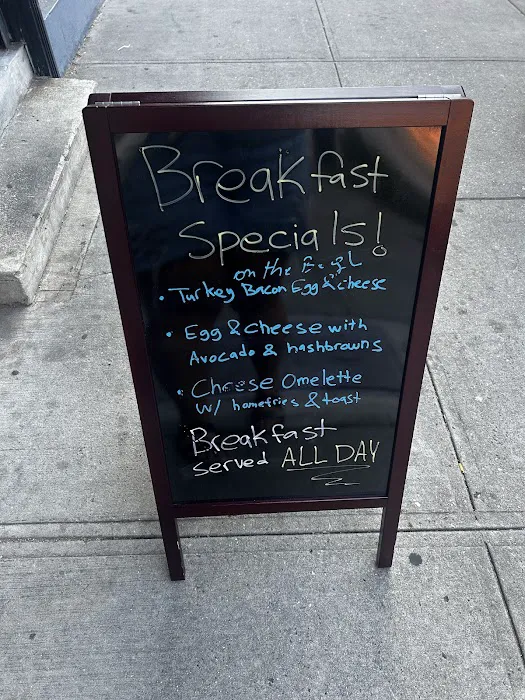 Breakfast
Specials!
on the
• Turkey Bacon Egg & cheese
• Egg & cheese with
Avocado & hashbrowns
• Cheese Omelette
w/ homefries & toast
Breakfast
served ALL DAY